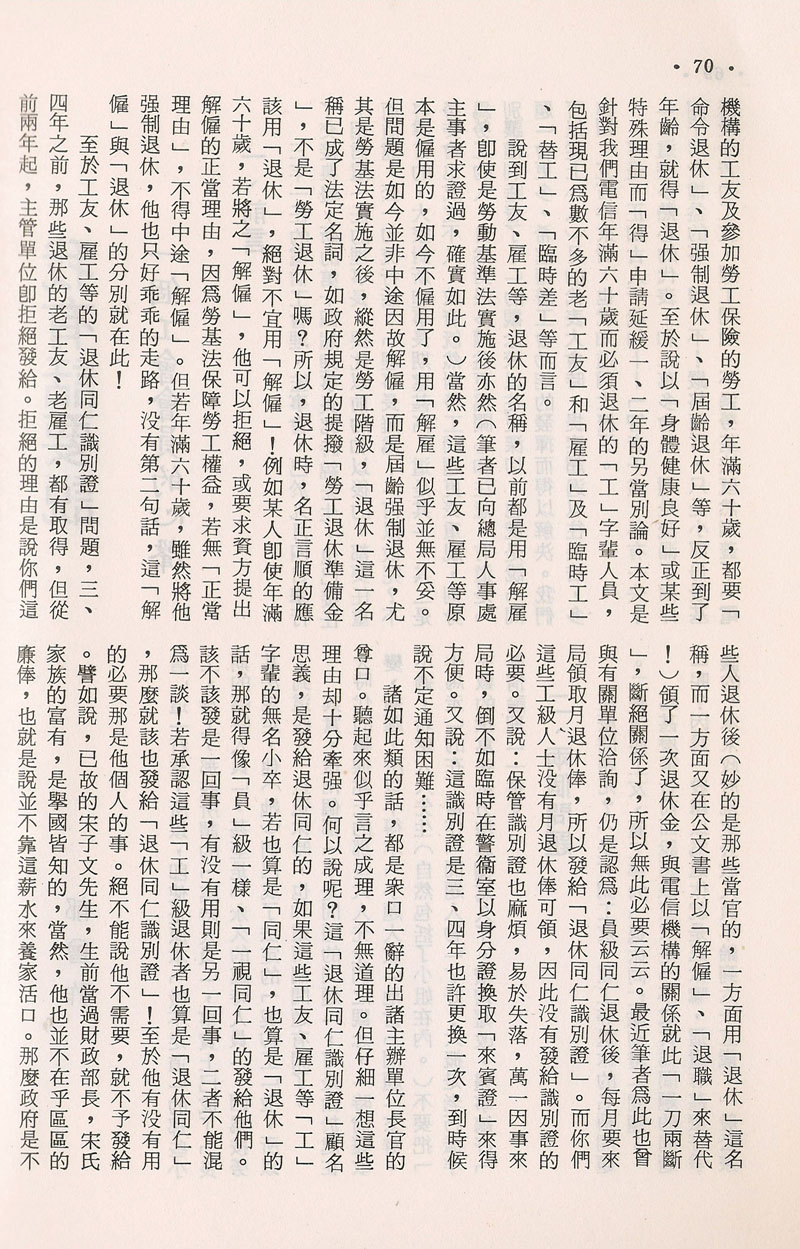 • 70 •
機構的工友及參加勞工保險的勞工，年滿六十歲，都要「
命令退休」、「强制退休」、「屆齡退休」等，反正到了
年齡，就得「退休」。至於說以「身體健康良好」或某些
特殊理由而「得」申請延緩一、二年的另當別論。本文是
針對我們電信年滿六十歲而必須退休的「工」字輩人員，
包括現已為數不多的老「工友」和「雇工」及「臨時工」
、「替工」、「臨時差」等而言。
說到工友、雇工等，退休的名稱，以前都是用「解雇
」，卽使是勞動基準法實施後亦然（筆者已向總局人事處
主事者求證過，確實如此。）當然，這些工友、雇工等原
本是僱用的，如今不僱用了，用「解雇」似乎並無不妥。
但問題是如今並非中途因故解僱，而是屆齡强制退休，尤
其是勞基法實施之後，縱然是勞工階級，「退休」這一名
稱已成了法定名詞，如政府規定的提撥「勞工退休準備金
」，不是「勞工退休」嗎？所以，退休時，名正言順的應
該用「退休」，絕對不宜用「解僱」！例如某人卽使年滿
六十歲，若將之「解僱」，他可以拒絕，或要求資方提出
解僱的正當理由，因爲勞基法保障勞工權益，若無「正當
理由」，不得中途「解僱」。但若年滿六十歲，雖然將他
强制退休，他也只好乖乖的走路，没有第二句話，這「解
僱」與「退休」的分別就在此！
至於工友、雇工等的「退休同仁識別證」問題，三、
四年之前，那些退休的老工友、老雇工，都有取得，但從
前兩年起，主管單位卽拒絕發給。拒絕的理由是說你們這
些人退休後（妙的是那些當官的，一方面用「退休」這名
稱，而一方面又在公文書上以「解僱」、「退職」來替代
！）領了一次退休金，與電信機構的關係就此「一刀兩斷
」，斷絕關係了，所以無此必要云云。最近筆者爲此也曾
與有關單位洽詢，仍是認爲：員級同仁退休後，每月要來
局領取月退休俸，所以發給「退休同仁識別證」。而你們
這些工級人士没有月退休俸可領，因此没有發給識別證的
必要。又說：保管識別證也麻煩，易於失落，萬一因事來
局時，倒不如臨時在警衞室以身分證換取「來賓證」來得
方便。又說：這識別證是三、四年也許更換一次，到時候
說不定通知困難……
諸如此類的話，都是衆口一辭的出諸主辦單位長官的
尊口。聽起來似乎言之成理，不無道理。但仔細一想這些
理由却十分牽强。何以說呢？這「退休同仁識別證」顧名
思義，是發給退休同仁的，如果這些工友、雇工等「工」
字輩的無名小卒，若也算是「同仁」，也算是「退休」的
話，那就得像「員」級一樣、「一視同仁」的發給他們。
該不該發是一回事，有没有用則是另一回事，二者不能混
爲一談！若承認這些「工」級退休者也算是「退休同仁」
，那麼就該也發給「退休同仁識別證」！至於他有没有用
的必要那是他個人的事。絕不能說他不需要，就不予發給
。譬如說，已故的宋子文先生，生前當過財政部長，宋氏
家族的富有，是擧國皆知的，當然，他也並不在乎區區的
廉俸，也就是說並不靠這薪水來養家活口。那麼政府是不